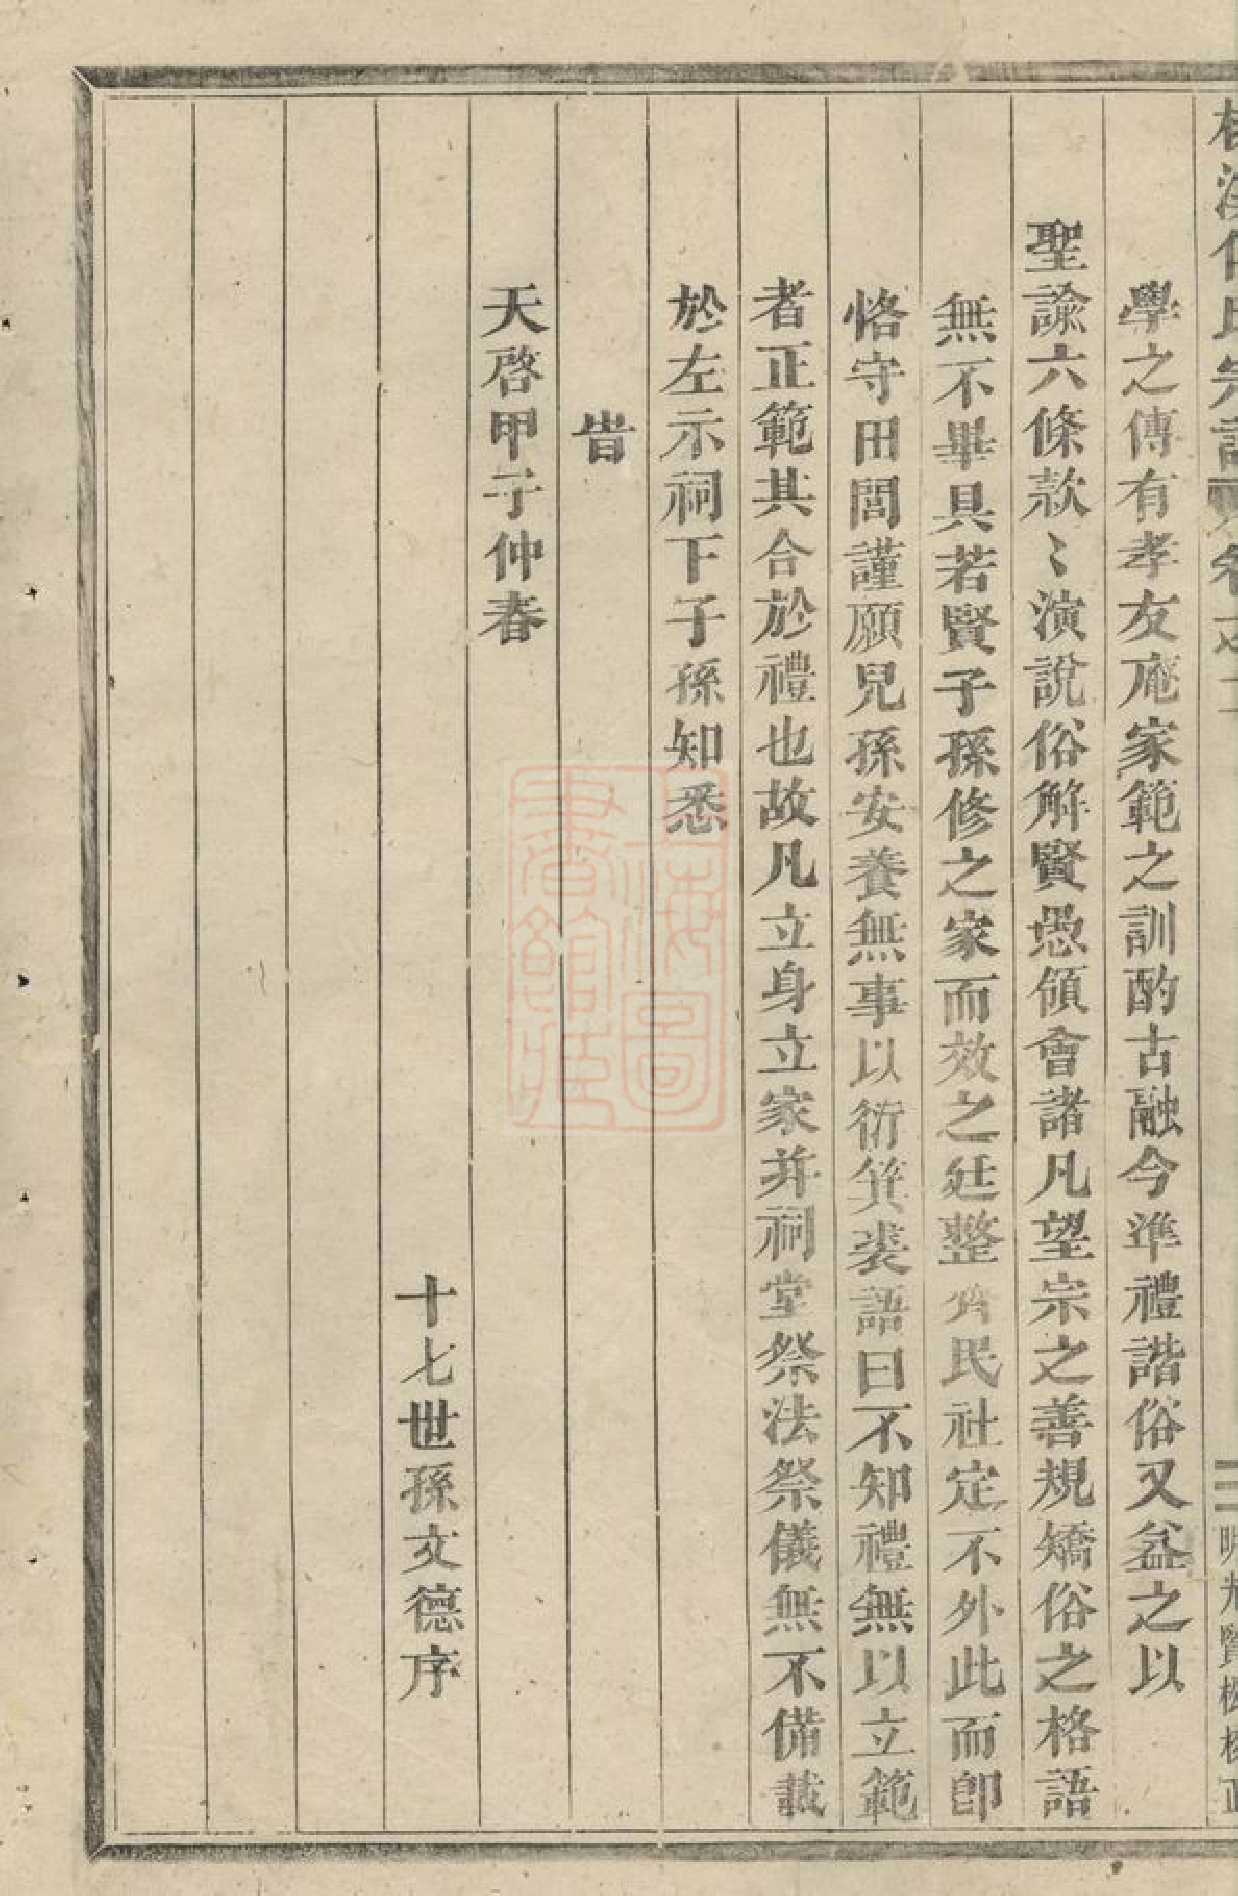 學之傳有孝友庵家範之訓酌古融今準禮諧俗又益之以
聖諭六條款〻演說俗解賢愚領會諸凡望宗之善規矯俗之格語
無不畢具若賢子孫修之家而效之廷整齊民社定不外此而卽
恪守田閭謹愿兒孫安養無事以衍箕裘語曰不知禮無以立範
者正範其合於禮也故凡立身立家并祠堂祭法祭儀無不備載
於左示祠下子孫知悉
旹
天啓甲子仲春
十七世孫文德序
上海圖書館藏